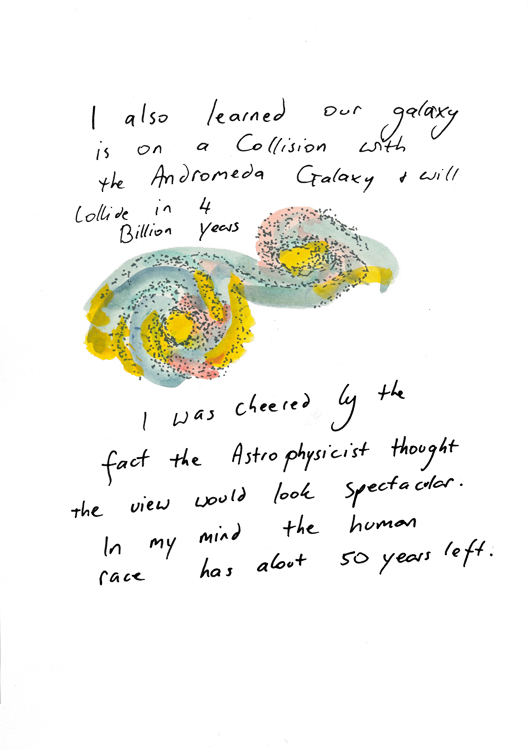 I also learned our galaxy
is on a Collision with
the Andromeda Galaxy & will
Collide in 4
Billion years
I was cheered by the
fact the Astrophysicist thought
the view would look spectacular.
In my mind the human
race has about 50 years left.